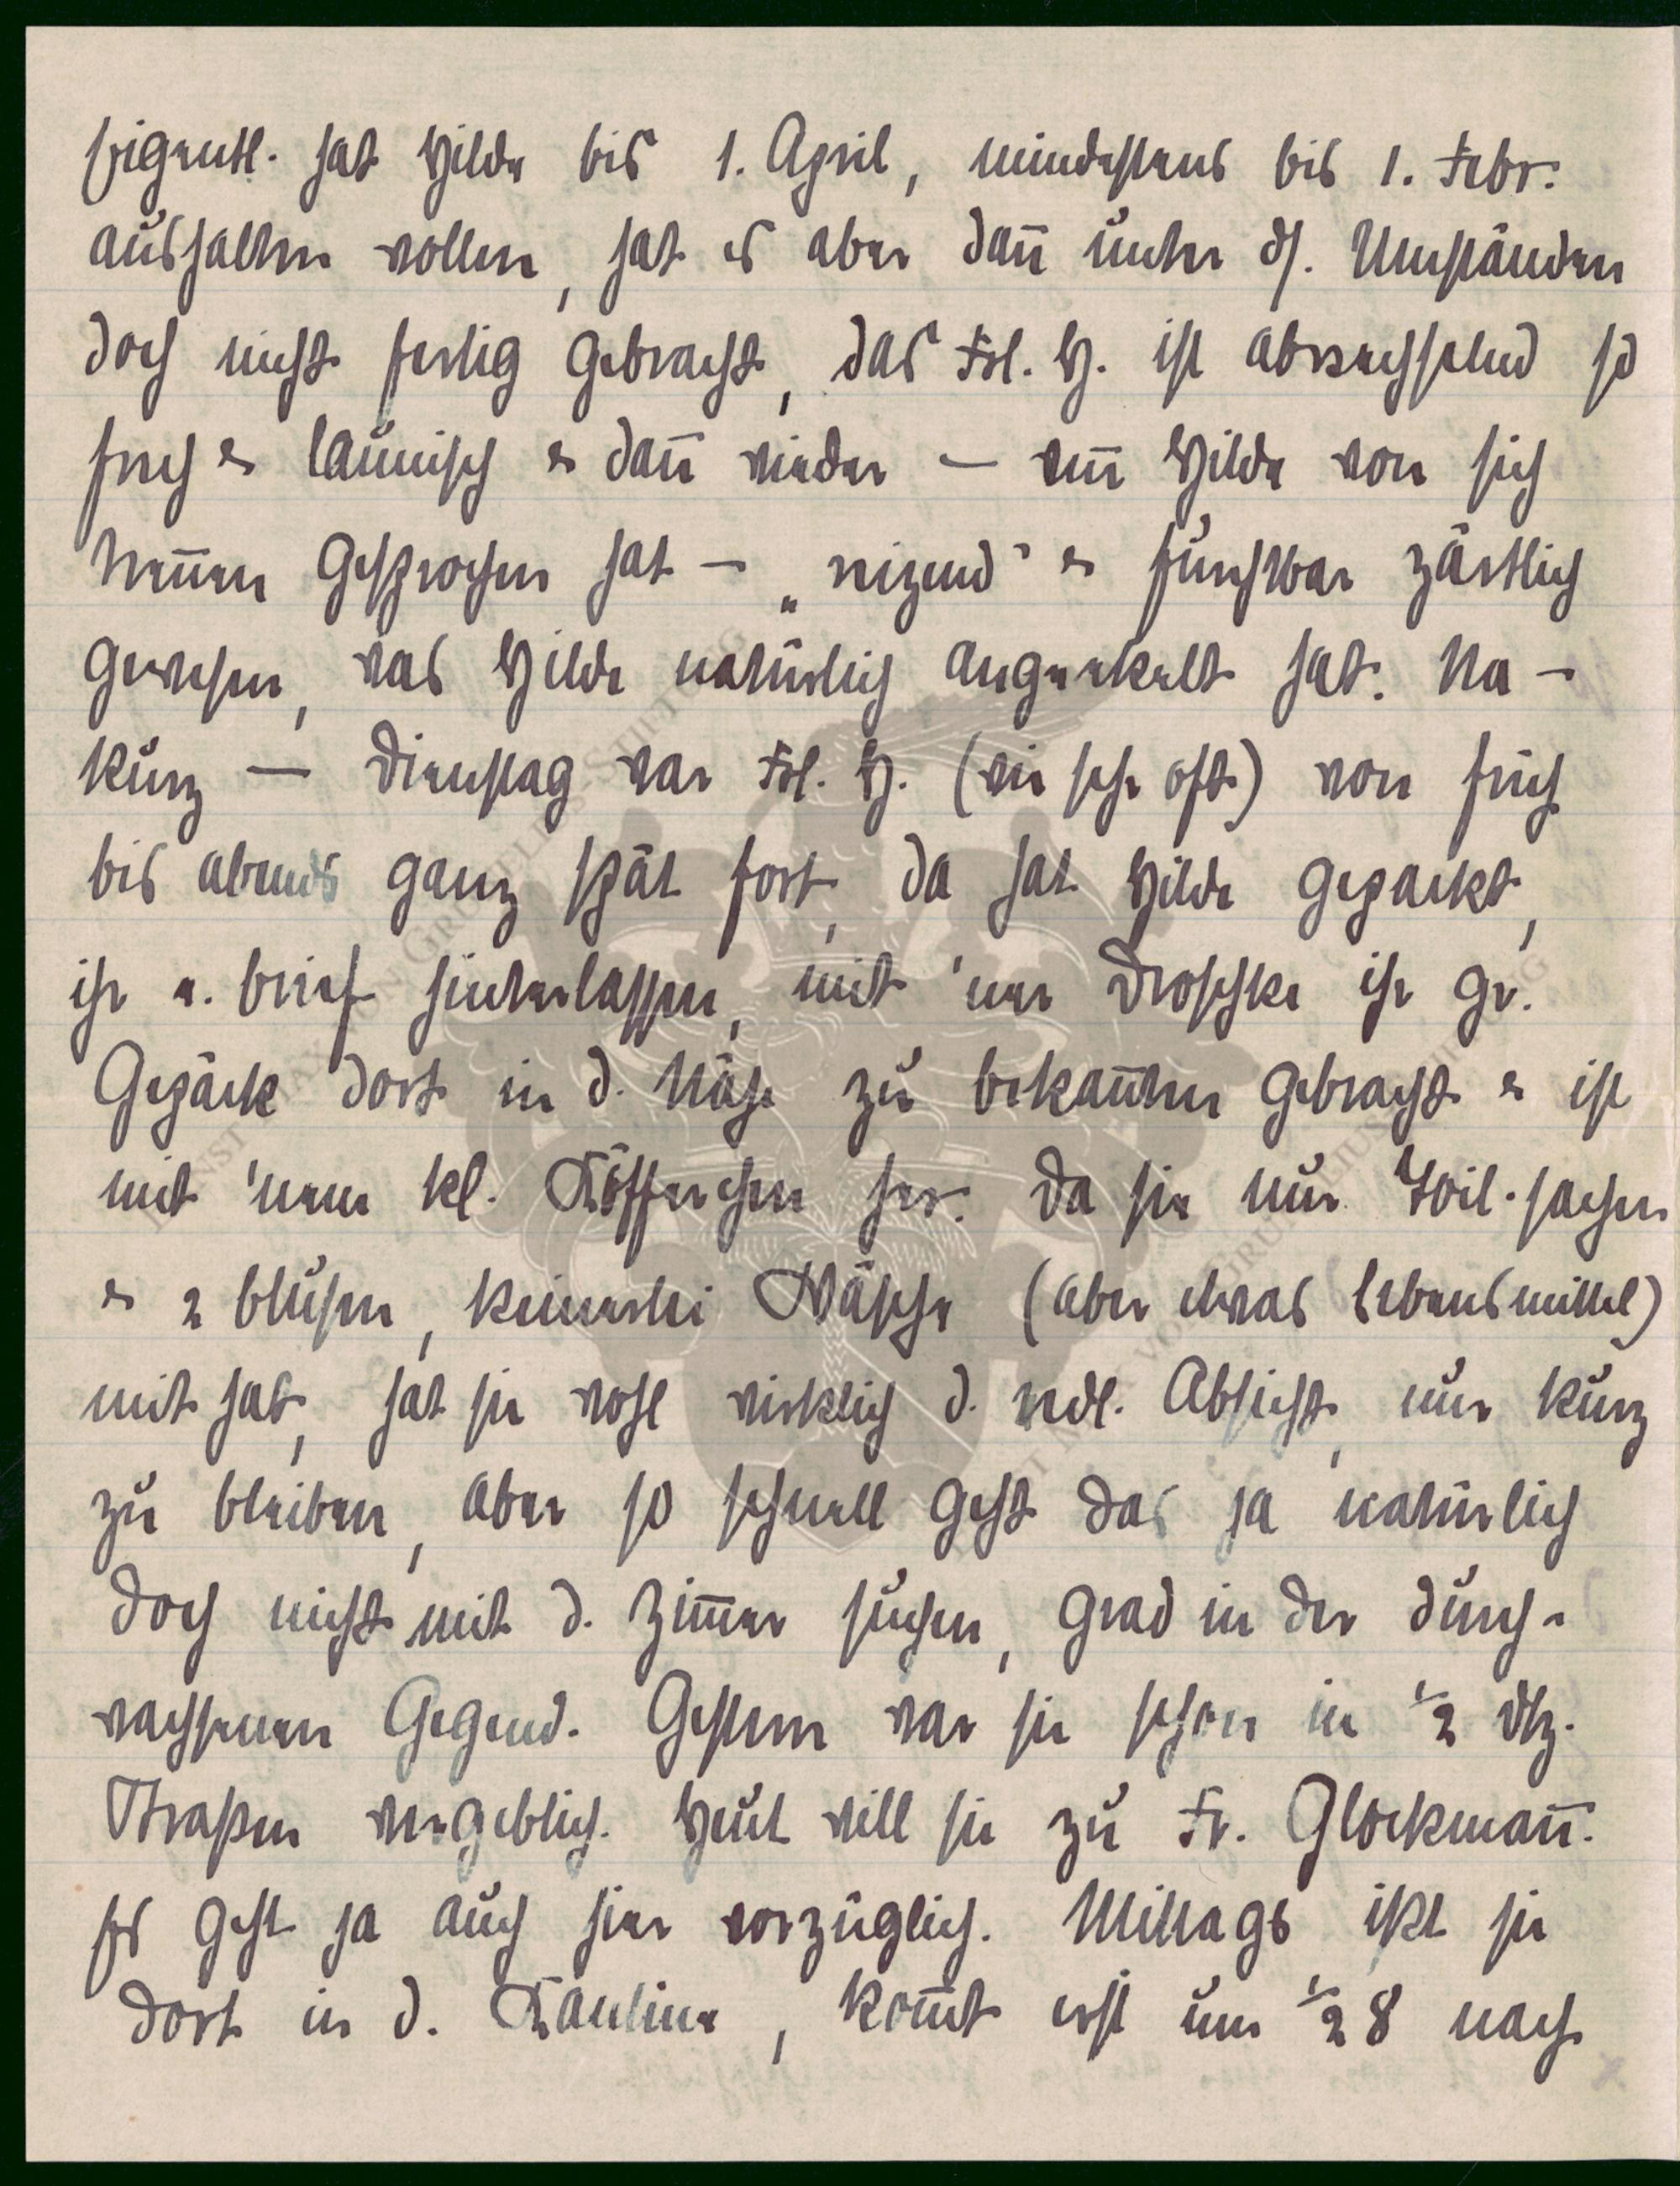 Eigentl. hat Hilde bis 1. April, mindestens bis 1. Febr.
aushalten wollen, hat es aber dan̄ unter ds. Umständen
doch nicht fertig gebracht, das Frl. H. ist abwechselnd so
frech & launisch & dan̄ wieder – wen̄ Hilde von sich
tren̄en gesprochen hat – „reizend" & furchtbar zärtlich
gewesen, was Hilde natürlich angeekelt hat. Na –
kurz – Dienstag war Frl. H. (wie sehr oft) von früh
bis abends ganz spät fort, da hat Hilde gepackt,
ihr e. Brief hinterlassen, mit 'ner Droschke ihr gr.
Gepäck dort in d. Nähe zu bekan̄ten gebracht & ist
mit 'nem kl. Köfferchen her. Da sie nur Toil.sachen
& 2 Blusen, keinerlei Wäsche (aber etwas Lebensmittel)
mit hat, hat sie wohl wirklich d. redl. Absicht, nur kurz
zu bleiben, aber so schnell geht das ja natürlich
doch nicht mit d. Zim̄er suchen, grad in der durch-
wachsenen Gegend. Gestern war sie schon in ½ Dtz.
Straßen vergeblich. Heut will sie zu Fr. Glockman̄.
Es geht ja auch hier vorzüglich. Mittags ißt sie
dort in d. Kantine, kom̄t erst um ½ 8 nach